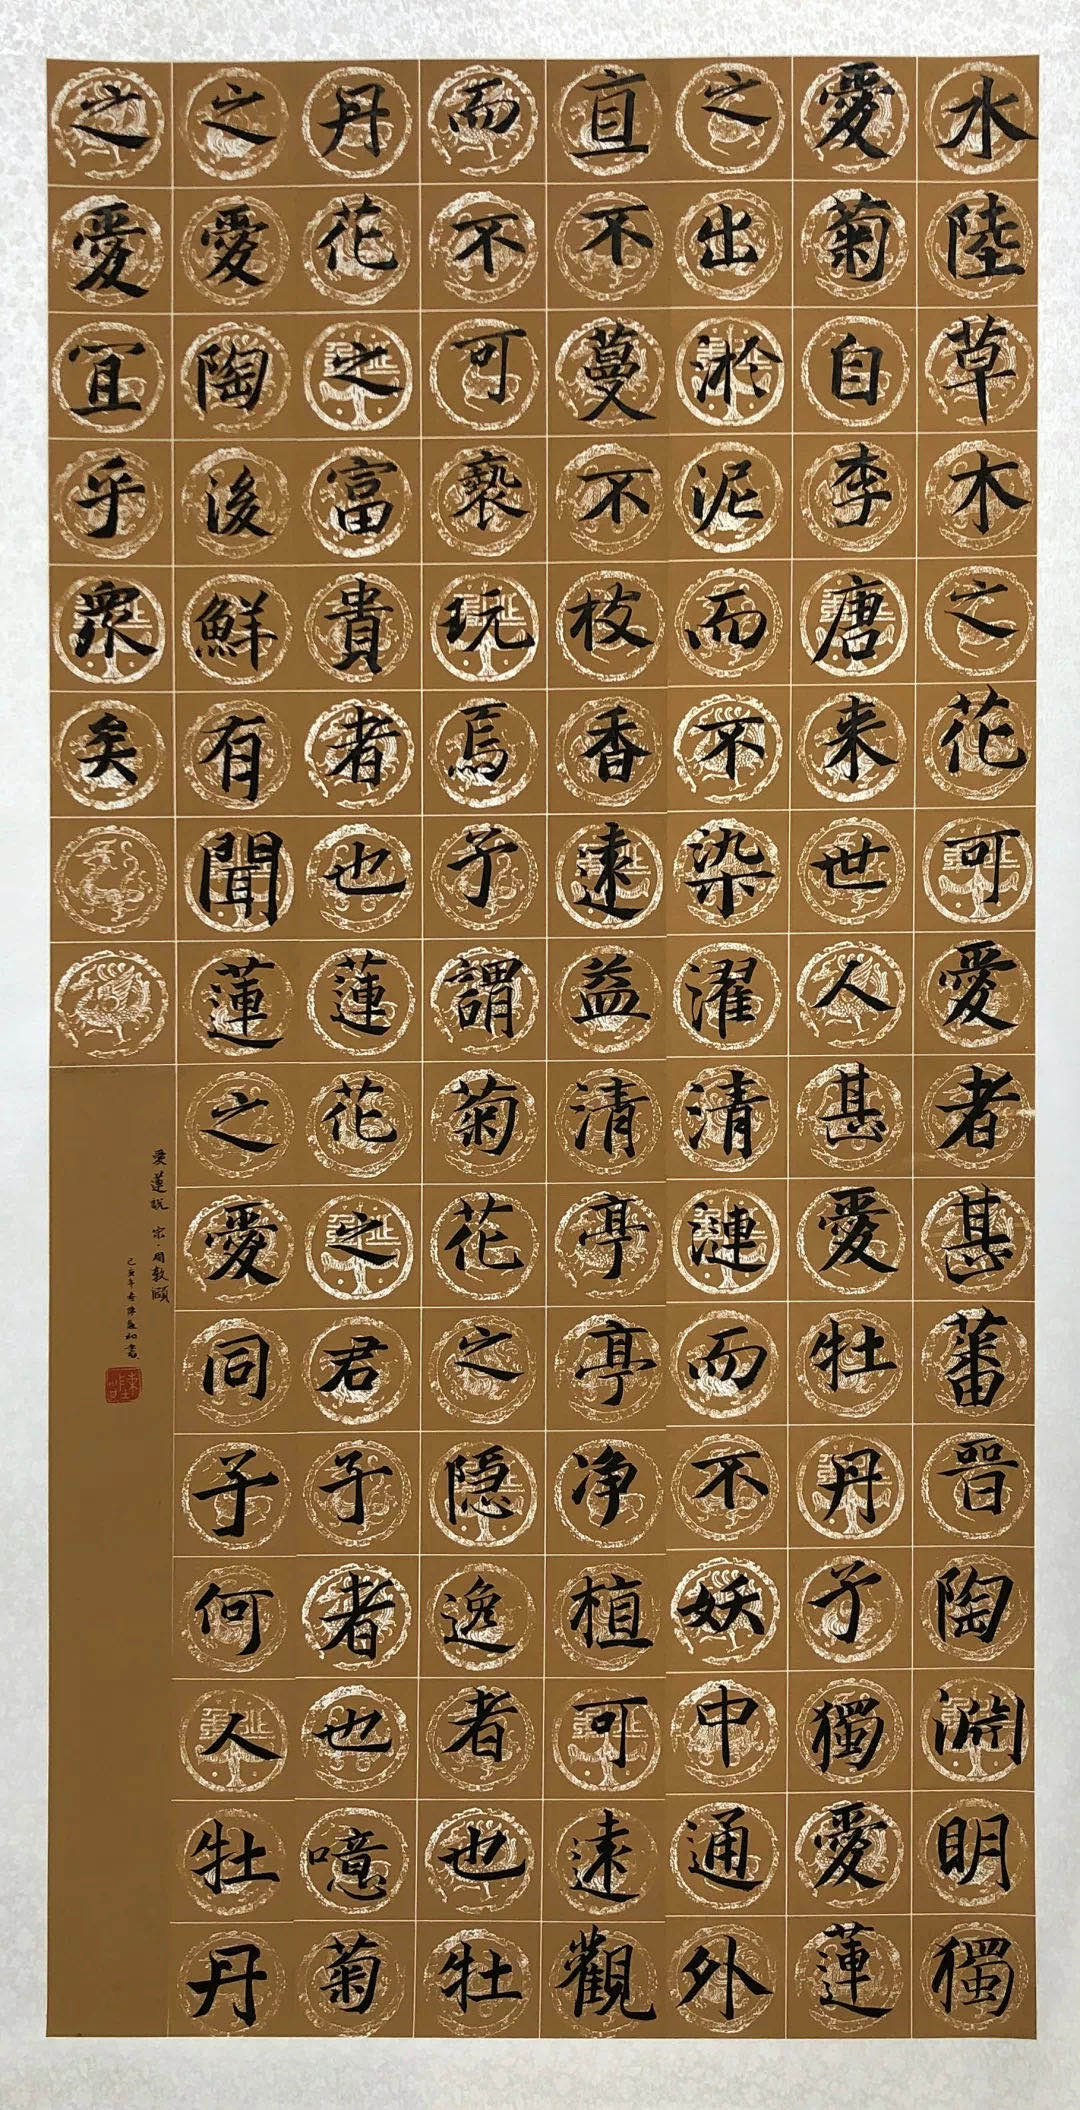 水陸草木之花可愛者甚蕃晉陶淵明獨
愛菊自李唐来世人甚愛牡丹予獨愛蓮
之出淤泥而不染濯清漣而不妖中通外
直不蔓不枝香遠益清亭亭净植可遠觀
而不可褻玩焉予謂菊花之隐逸者也牡
丹花之富貴者也蓮花之君子者也噫菊
之愛陶後鮮有聞蓮之愛同予何人牡丹
之愛宜乎眾矣
愛蓮説 宋·周敦頤
己亥年春 書